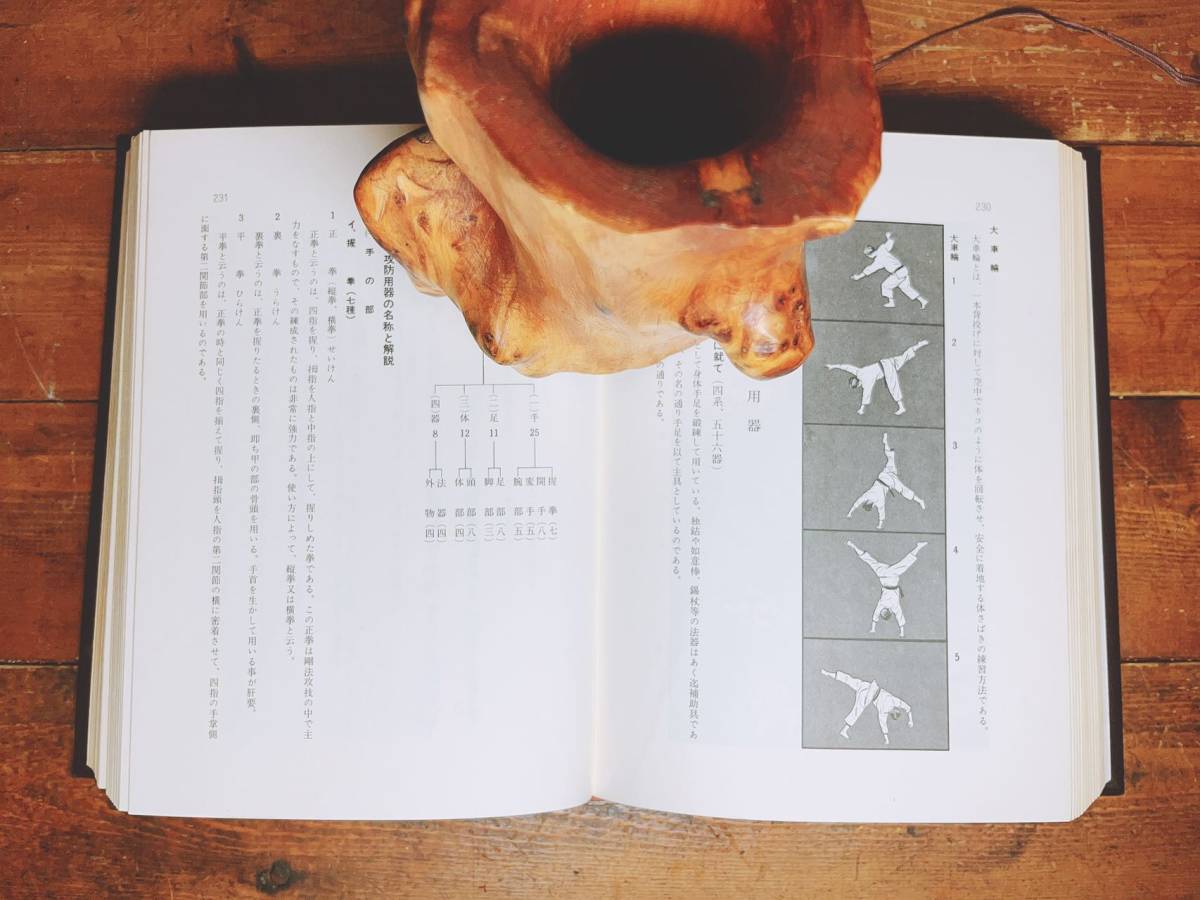 230
大車輪
大車輪とは、一本背投げに対して空中でネコのように体を回転させ、安全に着地する体さばきの練習方法である。
大車輪
1
2
3
4
5
用器
に就て(四系、五十六器)
して身体手足を鍛練して用いている。独鈷や如意棒、錫杖等の法器はあく迄補助具であ
その名の通り手足を以て主具としているのである。
の通りである。
(一)手 25
握拳(七
開手(八
変手(五
腕部(五
(二)足 11
足部(八)
脚部(三)
(三)体 12
頭部(八)
体部(四)
(四)器 8
法器(四
外物(四
231
攻防用器の名称と解説
手の部
イ、握拳(七種)
1 正拳(縦拳、横拳)せいけん
正拳と云うのは、四指を握り、拇指を人指と中指の上にして、握りしめた拳である。この正拳は剛法攻技の中で主
力をなすもので、その練成されたものは非常に強力である。使い方によって、縦拳又は横拳と云う。
2 裏拳 うらけん
裏拳と云うのは、正拳を握りたるときの裏側、即ち甲の部の骨頭を用いる。手首を生かして用いる事が肝要。
3 平拳 ひらけん
平拳と云うのは、正拳の時と同じく四指を揃えて握り、拇指頭を人指の第二関節の横に密着させて、四指の手掌側
に面する第二関節部を用いるのである。